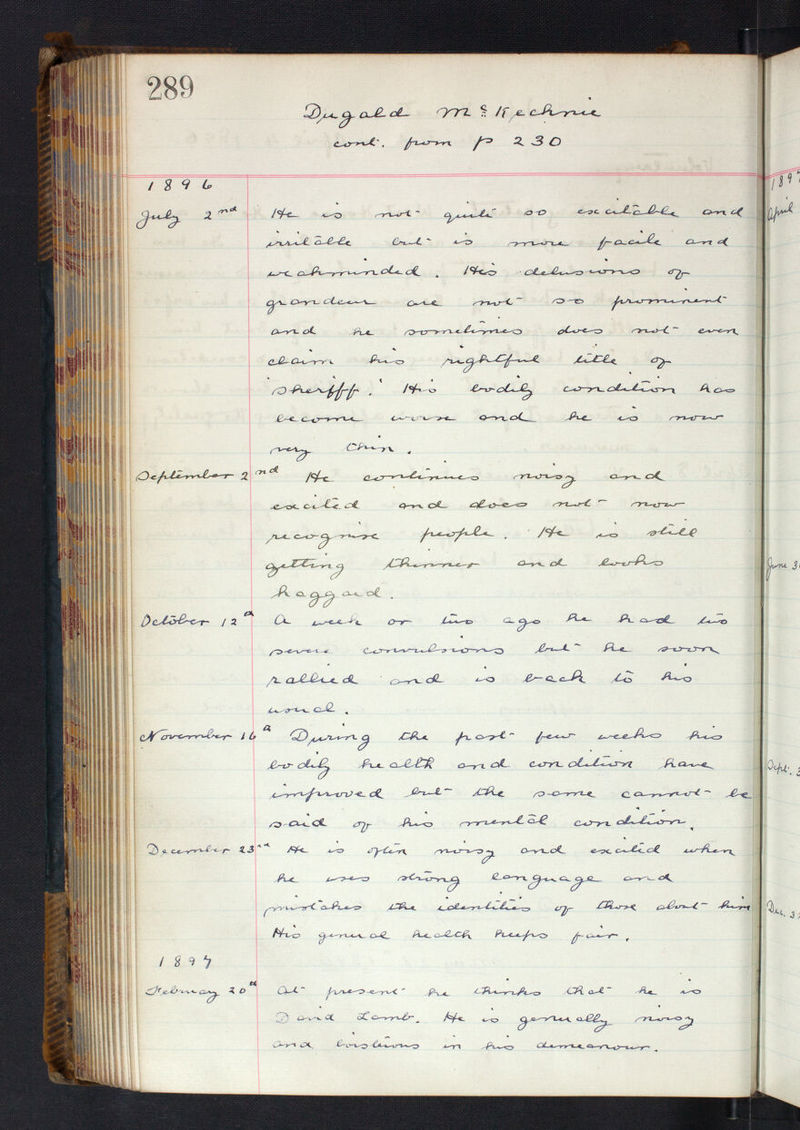 289
Dugald McKechnie
cont. from p 230
1896
July 2nd He is not quite so excitable and
irritable but is more facile and
weakminded. His delusions of
grandeur are not so prominent
and he sometimes does not even
claim his rightful title of
'sheriff.' His bodily condition has
become worse and he is now
very thin.
September 2nd He continues noisy and
excited and does not now
recognise people. He is still
getting thinner and looks
haggard.
October 12th A week or two ago he had two
severe convulsions but he soon
rallied and is back to his
usual.
November 16th During the past few weeks his
bodily health and condition have
improved but the same cannot be
said of his mental condition.
December 23rd He is often noisy and excited when
he uses strong language and
mistakes the identities of those about him
His general health keeps fair.
1897
February 20th At present he thinks that he is
David Lamb. He is generally noisy
and boisterous in his demeanour.
189
April
June 3
Sept. 3
Dec. 3